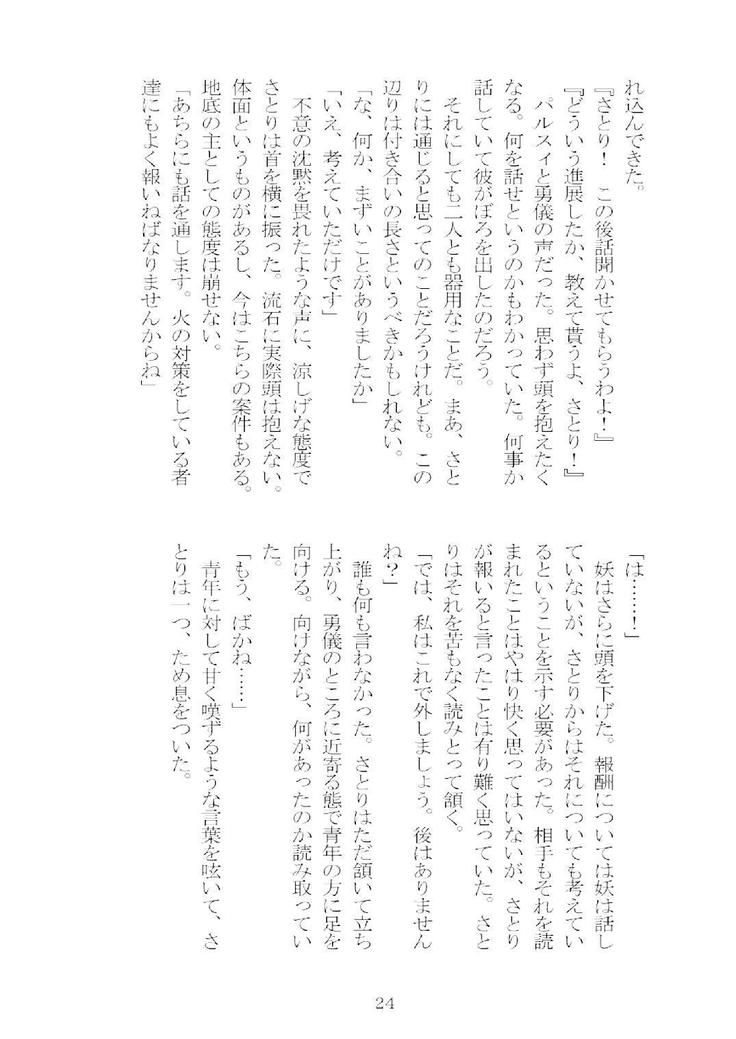 れ込んできた。
『さとり！　この後話聞かせてもらうわよ！』
『どういう進展したか、教えて貰うよ、さとり！』
　パルスィと勇儀の声だった。思わず頭を抱えたく
なる。何を話せというのかもわかっていた。何事か
話していて彼がぼろを出したのだろう。
　それにしても二人とも器用なことだ。まあ、さと
りには通じると思ってのことだろうけれども。この
辺りは付き合いの長さというべきかもしれない。
「な、何か、まずいことがありましたか」
「いえ、考えていただけです」
　不意の沈黙を畏れたような声に、涼しげな態度で
さとりは首を横に振った。流石に実際頭は抱えない。
体面というものがあるし、今はこちらの案件もある。
地底の主としての態度は崩せない。
「あちらにも話を通します。火の対策をしている者
達にもよく報いねばなりませんからね」
「は……！」
　妖はさらに頭を下げた。報酬については妖は話し
ていないが、さとりからはそれについても考えてい
るということを示す必要があった。相手もそれを読
まれたことはやはり快く思ってはいないが、さとり
が報いると言ったことは有り難く思っていた。さと
りはそれを苦もなく読みとって頷く。
「では、私はこれで外しましょう。後はありません
ね？」
　誰も何も言わなかった。さとりはただ頷いて立ち
上がり、勇儀のところに近寄る態で青年の方に足を
向ける。向けながら、何があったのか読み取ってい
た。
「もう、ばかね……」
　青年に対して甘く嘆ずるような言葉を呟いて、さ
とりは一つ、ため息をついた。
24